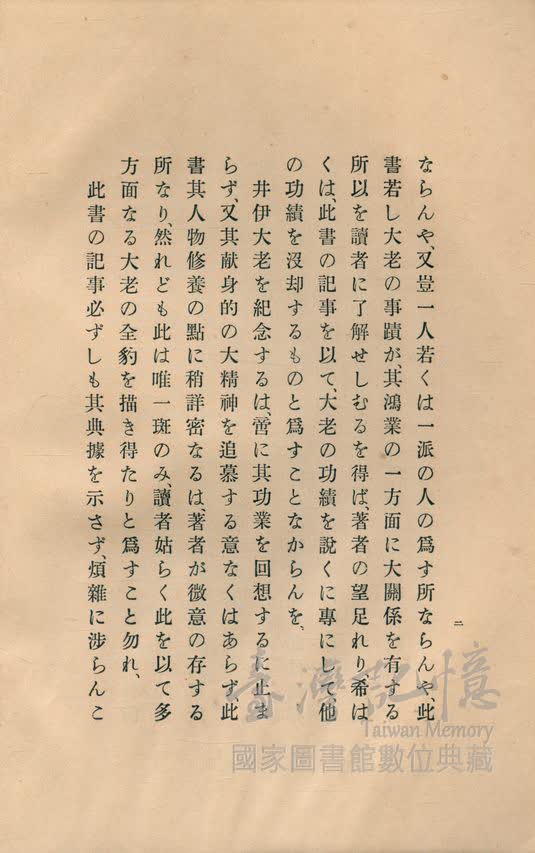 ならんや、又豈一人若くは一派の人の爲す所ならんや、此
書若し大老の事蹟が、其鴻業の一方面に大關係を有する
所以を讀者に了解せしむるを得ば、著者の望足れり希は
くは、此書の記事を以て、大老の功績を説くに專にして、他
の功績を沒却するものと爲すことなからんを、
井伊大老を紀念するは、啻に其功業を回想するに止ま
らず、又其献身的の大精神を追慕する意なくはあらず此
書其人物修養の點に稍詳密なるは、著者が微意の存する
所なり、然れども此は唯一斑のみ、讀者姑らく此を以て多
方面なる大老の全豹を描き得たりと爲すこと勿れ、
此書の記事必ずしも其典據を示さず、煩雜に涉らんこ
二
臺灣記憶
Taiwan Memory
國家圖書館數位典藏